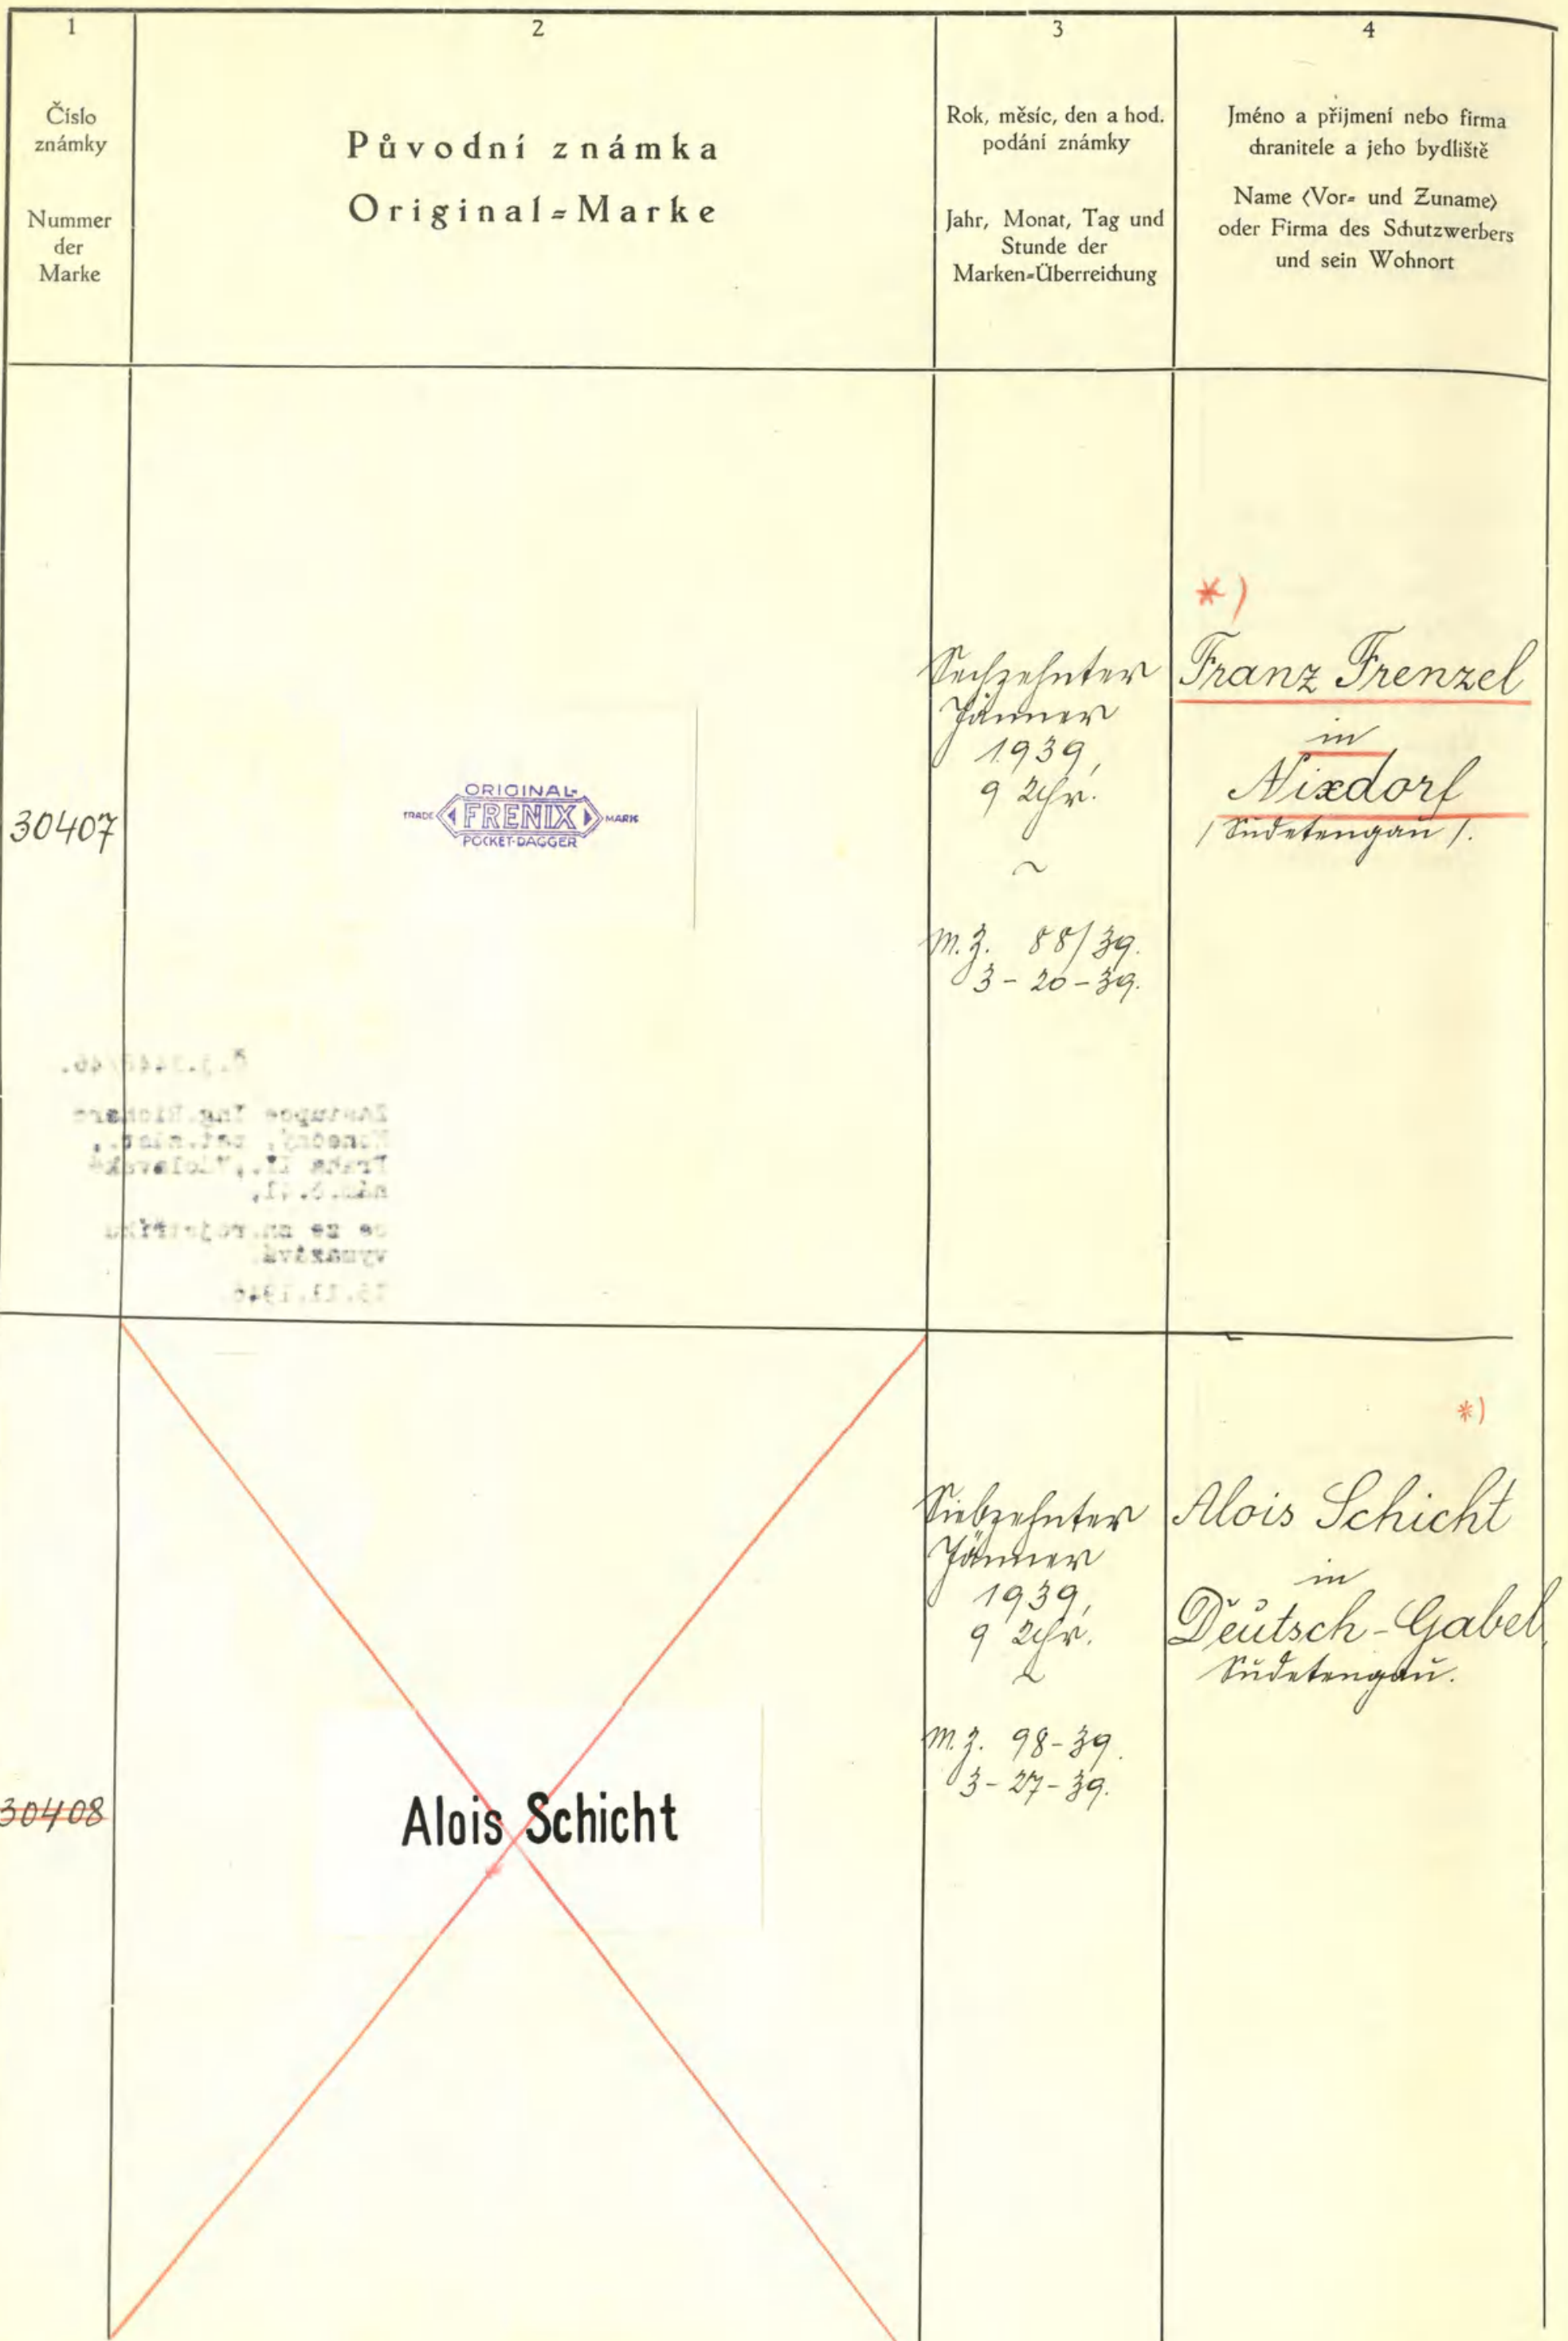 1
2
3
4
Číslo
známky
Nummer
der
Marke
Původní známka
Original-Marke
Rok, měsíc, den a hod.
podání známky
Jahr, Monat, Tag und
Stunde der
Marken-Überreichung
Jméno a přijmení nebo firma
chranitele a jeho bydliště
Name (Vor- und Zuname)
oder Firma des Schutzwerbers
und sein Wohnort
30407
ORIGINAL-
TRADE FRENIX MARK
POCKET-DAGGER
Sechzehnter
Jänner
1939,
9 Uhr.
~
M.Z. 88/39.
3-20-39.
*)
Franz Frenzel
in
Nixdorf
/Sudetengau/.
Zástupce Ing. Richard
Praha II.,
nám.č.41,
se ze zn. rejstříku
vymazává
30408
Alois Schicht
Siebzehnter
Jänner
1939,
9 Uhr.
~
M.Z. 98-39.
3-27-39.
*)
Alois Schicht
in
Deutsch-Gabel,
Sudetengau.